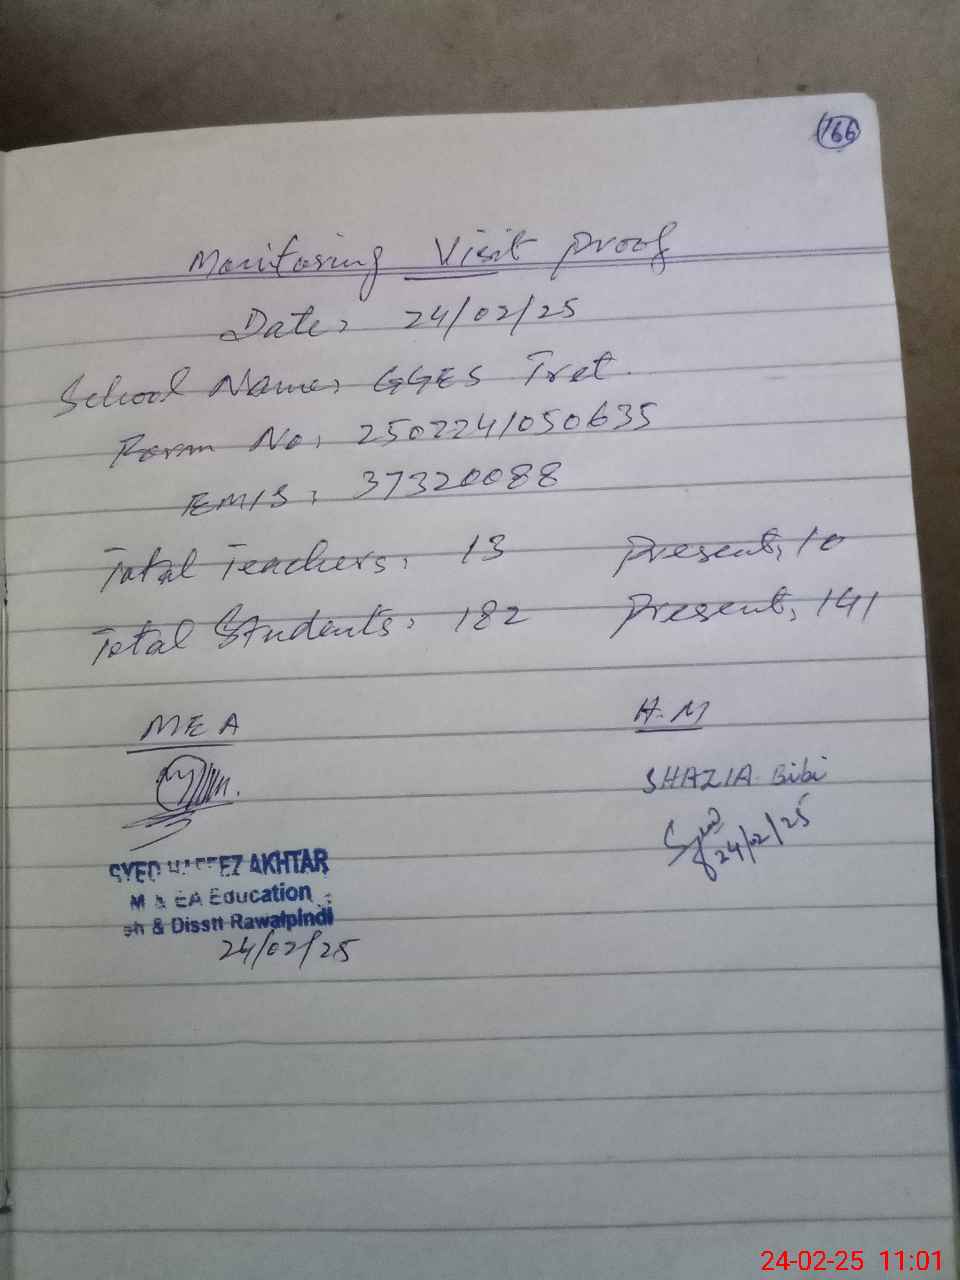 166
Monitoring Visit Proof
Date: 24/02/25
School Name: GGES Tret.
Form No: 2502241050635
EMIS: 37320088
Total Teachers: 13 Present: 10
Total Students: 182 Present: 141
MEA H.M
SHAZIA Bibi
24/02/25
SYED AKHTAR
M & EA Education
& Disstt Rawalpindi
24/02/25
24-02-25 11:01